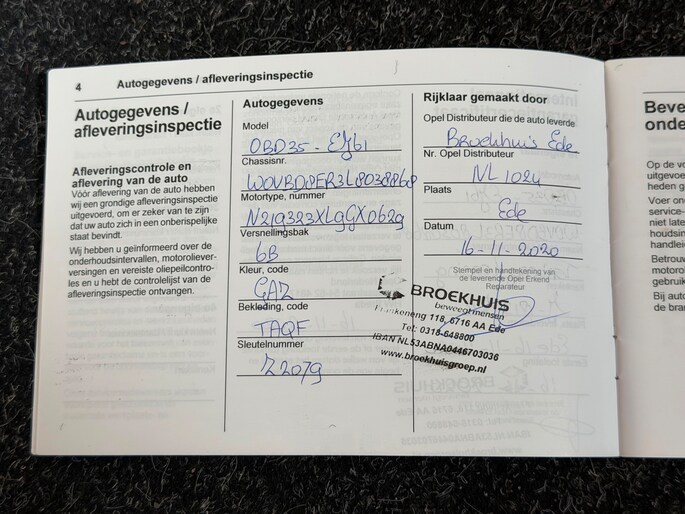 4 Autogegevens / afleveringsinspectie
Autogegevens /
afleveringsinspectie
Afleveringscontrole en
aflevering van de auto
Vóór aflevering van de auto hebben
wij een grondige afleveringsinspectie
uitgevoerd, om er zeker van te zijn
dat uw auto zich in een onberispelijke
staat bevindt.
Wij hebben u geïnformeerd over de
onderhoudsintervallen, motoroliever-
versingen en vereiste oliepeilcontro-
les en u hebt de controlelijst van de
afleveringsinspectie ontvangen.
Autogegevens
Model
OBD35 - EJ61
Chassisnr.
W0VBD8ER3L8038868
Motortype, nummer
N219323XLGGX0629
Versnellingsbak
6B
Kleur, code
GAZ
Bekleding, code
TAQF
Sleutelnummer
Z2079
Rijklaar gemaakt door
Opel Distributeur die de auto leverde
Broekhuis Ede
Nr. Opel Distributeur
NL 1024
Plaats
Ede
Datum
16-11-2020
Stempel en handtekening van
de leverende Opel Erkend
Reparateur
BROEKHUIS
beweegt mensen
Frankeneng 118, 6716 AA Ede
Tel: 0318-648800
IBAN NL53ABNA0446703036
www.broekhuisgroep.nl
Beve
onde
Op de vo
uitgevoe
heden g
Voer on
service-
niet late
houdsin
handleid
Betrouw
motorol
gebruik
Bij auto
de bran